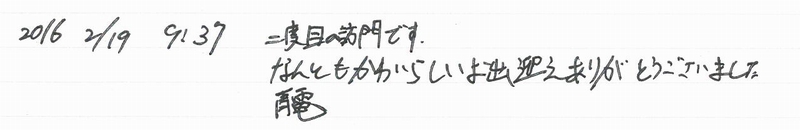 2016 2/19 9:37 二度目の訪問です.
なんともかわいらしいお出迎えありがとうございました
青電